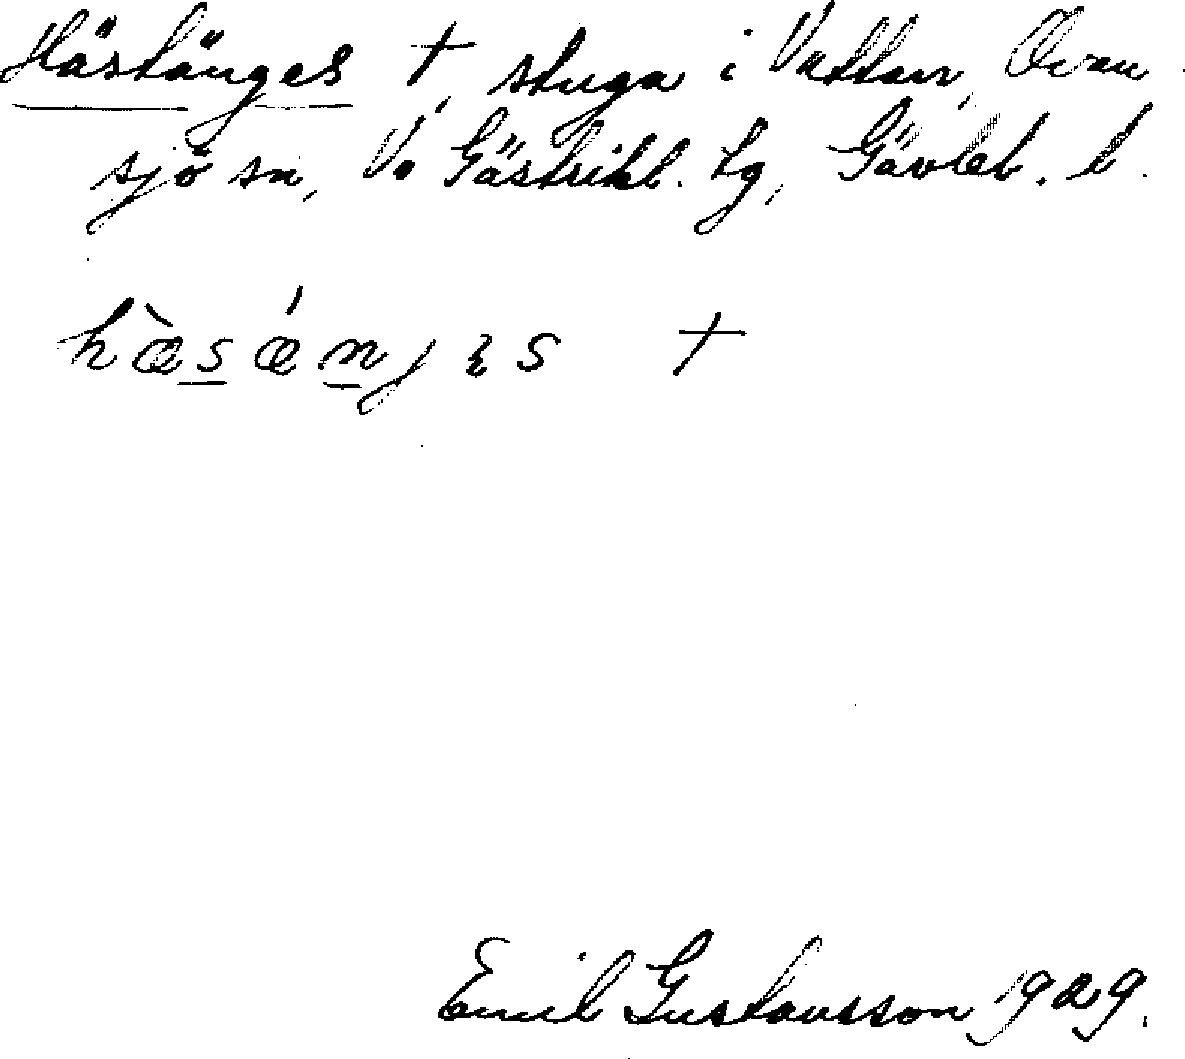 Hästänges †, stuga i Vattan, Ovan-
sjö sn, Vo Gästrikl. tg, Gävleb. l.
hæ̀sǽnjɛs †
Emil Gustavsson 1929.